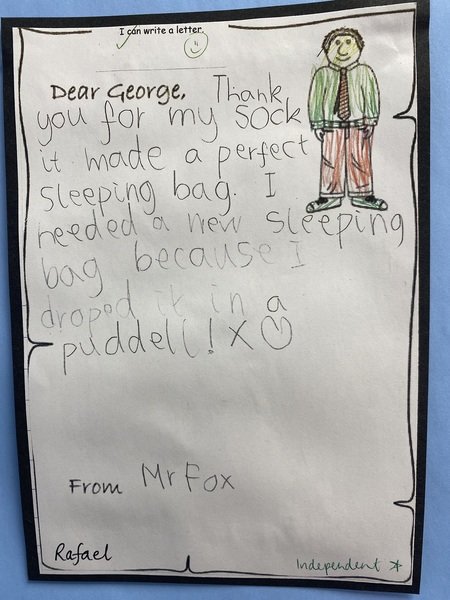 I can write a letter.
Dear George, Thank
you for my Sock
it made a perfect
sleeping bag. I
needed a new sleeping
bag because I
droped it in a
puddell! X
From Mr Fox
Rafael
Independent